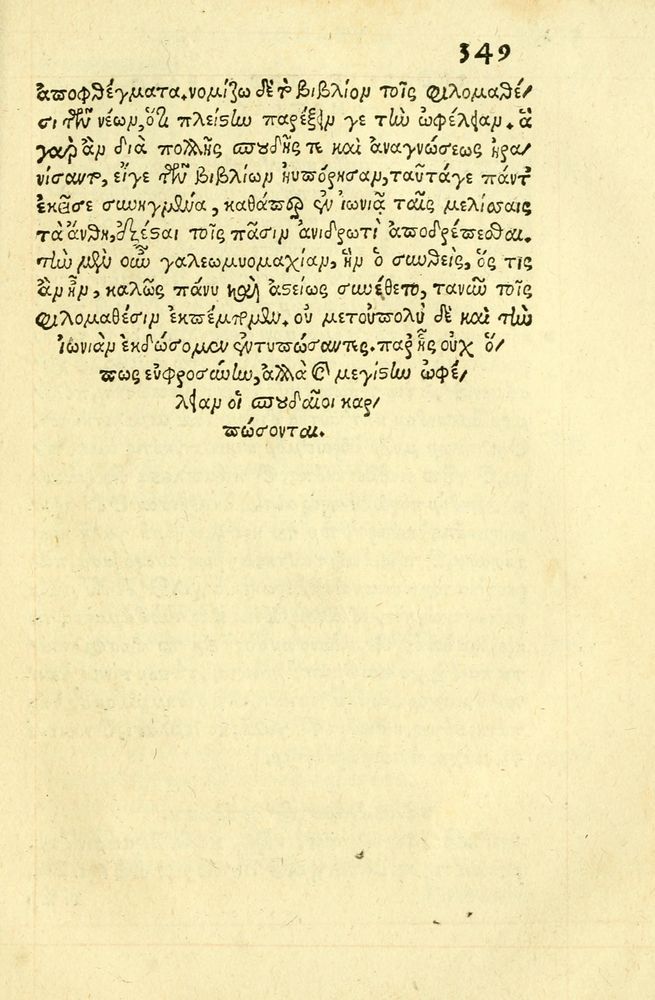 349
ἀποφθέγματα. νομίζω δὲ τὸ βιβλίον τοῖς φιλομαθέ/
σι τῶν νέων, ὅτι πλείστην παρέξειν γε τὴν ὠφέλειαν. ἃ
γαρ ἂν διὰ πολλῆς σπουδῆς τε καὶ ἀναγνώσεως ἠρα/
νίσαντο, εἴγε τῶν βιβλίων ηὐπόρησαν, ταῦτάγε πάντ
ἐκεῖσε συνηγμένα, καθάπερ ἐν ἰωνιᾷ ταῖς μελίσσαις
τὰ ἄνθη, ἔξεσται τοῖς πᾶσιν ἀνιδρωτὶ ἀποδρέπεσθαι.
τὴν μὲν οὖν γαλεωμυομαχίαν, ἣν ὁ συνθεὶς, ὅς τις
ἂν ἦν, καλῶς πάνυ καὶ ἀστείως συνέθετο, τανῦν τοῖς
φιλομαθέσιν ἐκπέμπομεν. οὐ μετοὐπολὺ δὲ καὶ τὴν
ἰωνιὰν ἐκδώσομεν ἐντυπώσαντες. παρ ἧς οὐχ ὅ/
πως εὐφροσύνην, ἀλλὰ καὶ μεγίστην ὠφέ/
λειαν οἱ σπουδαῖοι καρ/
πώσονται.